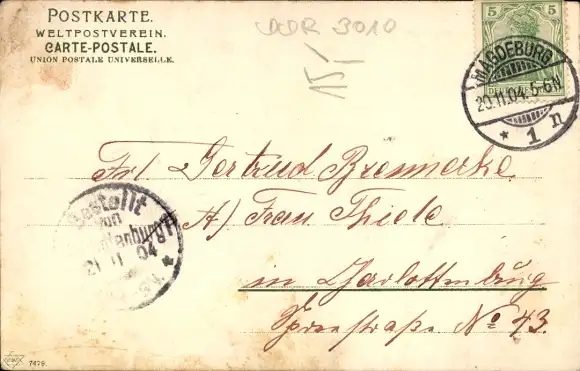 POSTKARTE.
WELTPOSTVEREIN.
CARTE-POSTALE.
UNION POSTALE UNIVERSELLE.
DDR 3010
15,-
5 5
MAGDEBURG
20.11.04. 5-6N
* 1 n
Frl Gertrud Brennecke
A/ Frau Thiele
in Charlottenburg
Spreestraße No 43.
Bestellt
von
Charlottenburg
21 11 04
7479.